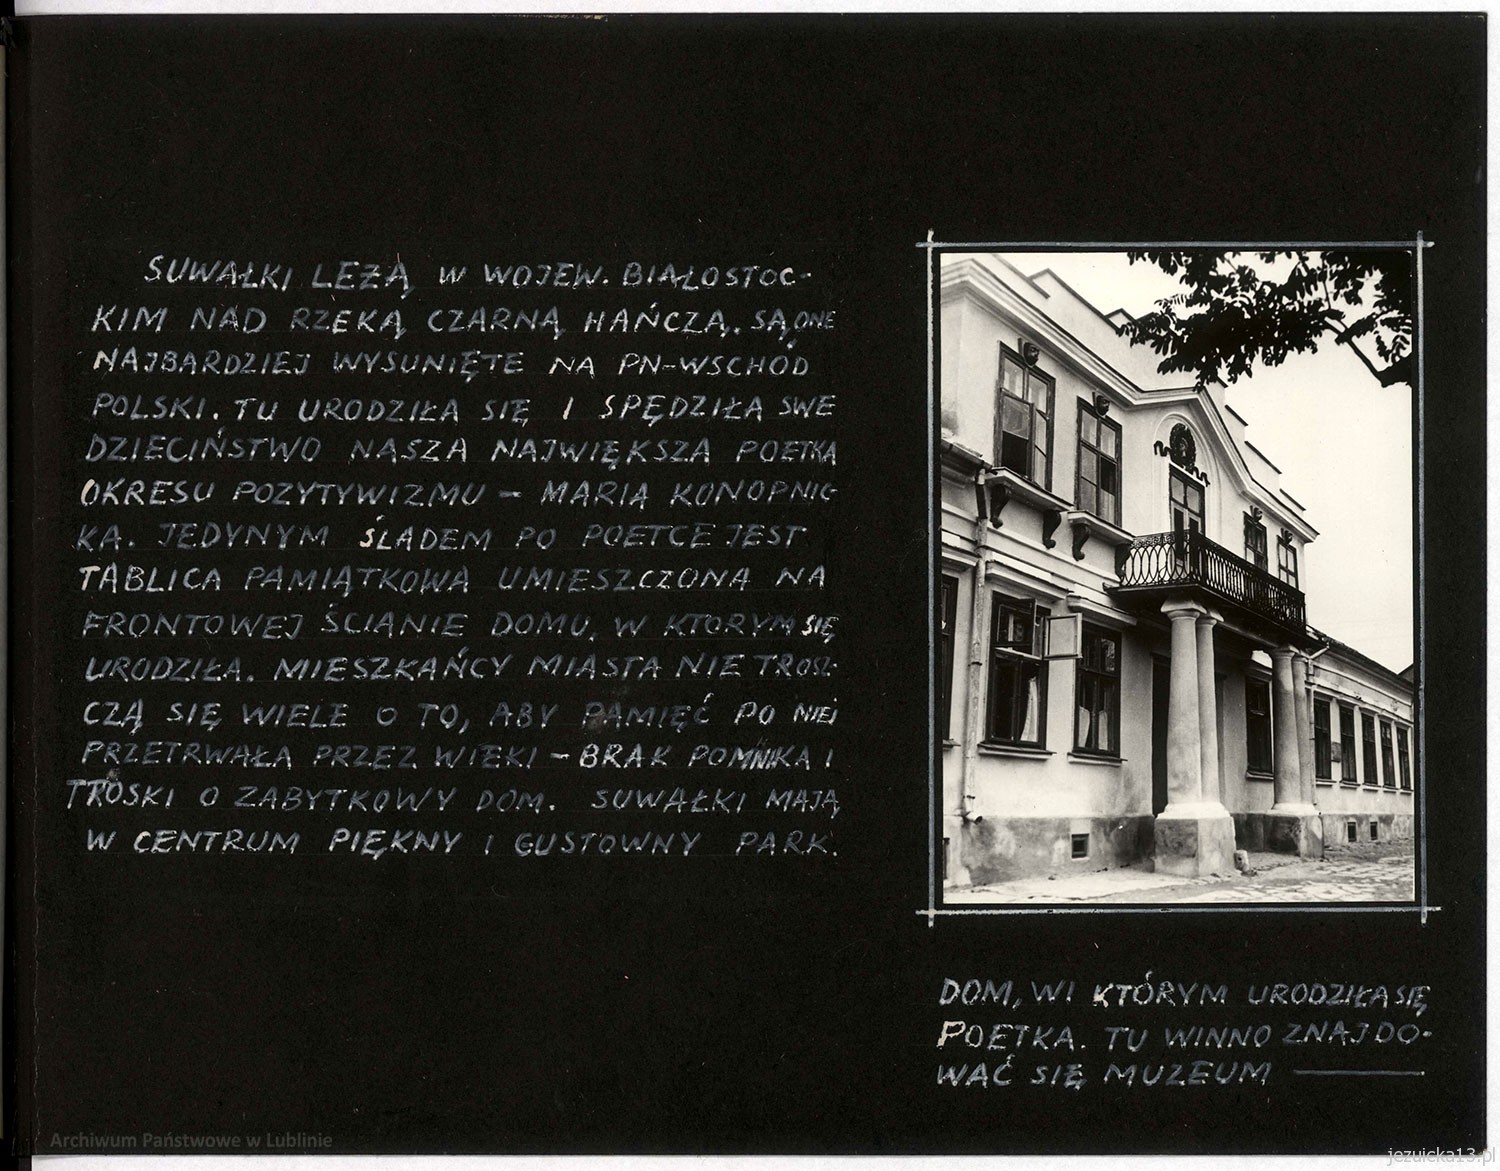 SUWAŁKI LEŻĄ W WOJEW. BIAŁOSTOC-
KIM NAD RZEKĄ CZARNĄ HAŃCZĄ. SĄ ONE
NAJBARDZIEJ WYSUNIĘTE NA PN-WSCHÓD
POLSKI. TU URODZIŁA SIĘ I SPĘDZIŁA SWE
DZIECIŃSTWO NASZA NAJWIĘKSZA POETKA
OKRESU POZYTYWIZMU - MARIA KONOPNIC
KA. JEDYNYM ŚLADEM PO POETCE JEST
TABLICA PAMIĄTKOWA UMIESZCZONA NA
FRONTOWEJ ŚCIANIE DOMU, W KTORYM SIĘ
URODZIŁA. MIESZKAŃCY MIASTA NIE TROSZ-
CZĄ SIĘ WIELE O TO, ABY PAMIĘĆ PO NIEJ
PRZETRWAŁA PRZEZ WIEKI - BRAK POMNIKA I
TROSKI O ZABYTKOWY DOM. SUWAŁKI MAJĄ
W CENTRUM PIĘKNY I GUSTOWNY PARK.
DOM, WI KTÓRYM URODZIŁA SIĘ
POETKA. TU WINNO ZNAJDO-
WAĆ SIĘ MUZEUM
Archiwum Państwowe w Lublinie
jezuicka13.pl